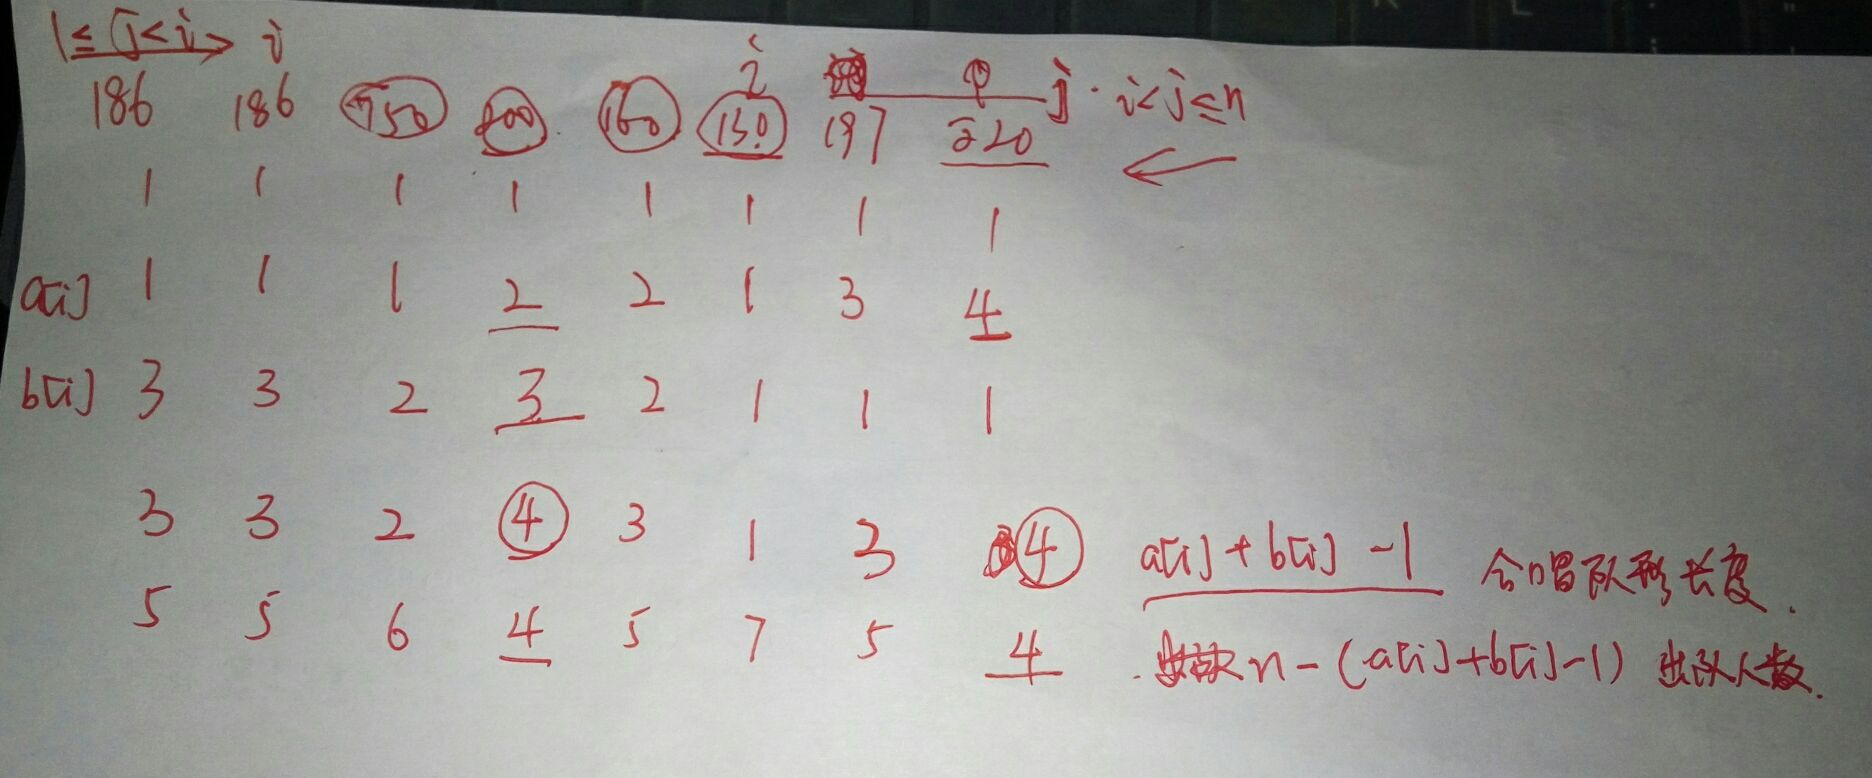 1≤j<i i
i j i<j≤n
186 186 150 200 160 130 197 220
1 1 1 1 1 1 1 1
a[i] 1 1 1 2 2 1 3 4
b[i] 3 3 2 3 2 1 1 1
3 3 2 4 3 1 3 4 a[i]+b[i]-1 合唱队形长度.
5 5 6 4 5 7 5 4 n-(a[i]+b[i]-1) 出队人数.